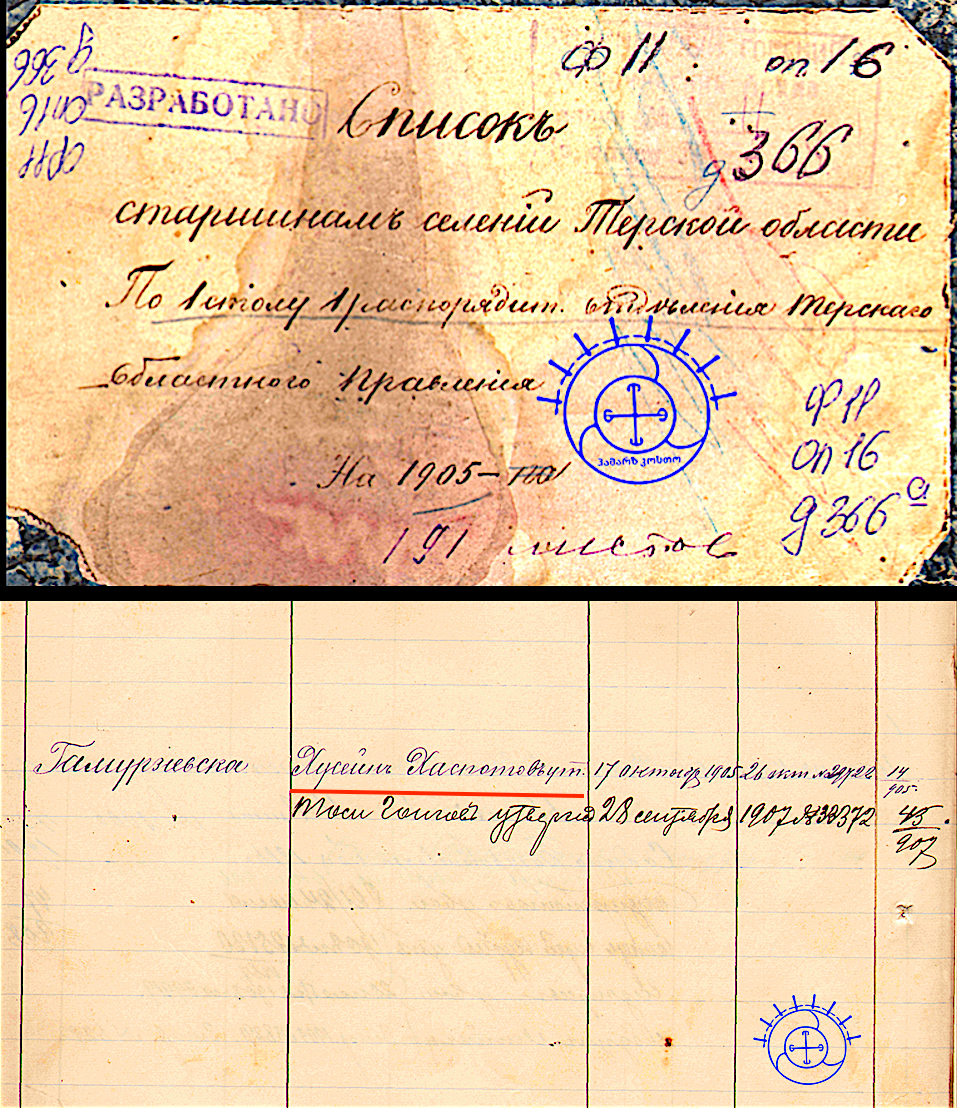 д 366
оп 16
ф 11
РАЗРАБОТАНО
ф 11 оп 16
д 366
Списокъ
старшинамъ селеній Терской области
По 1 столу 1 распорядит. отдѣленія Терскаго
Областного Правленія
На 1905 – на
191 листов
ф 11
оп 16
д 366 а
ჰამარზ კოსთო
Гамурзіевска Хусейнъ Хаспотовъ ут. 17 октябр 1905 26 окт № 29722 14/905.
Тоси утвержд 28 сентября 1907 № 33372 45/907